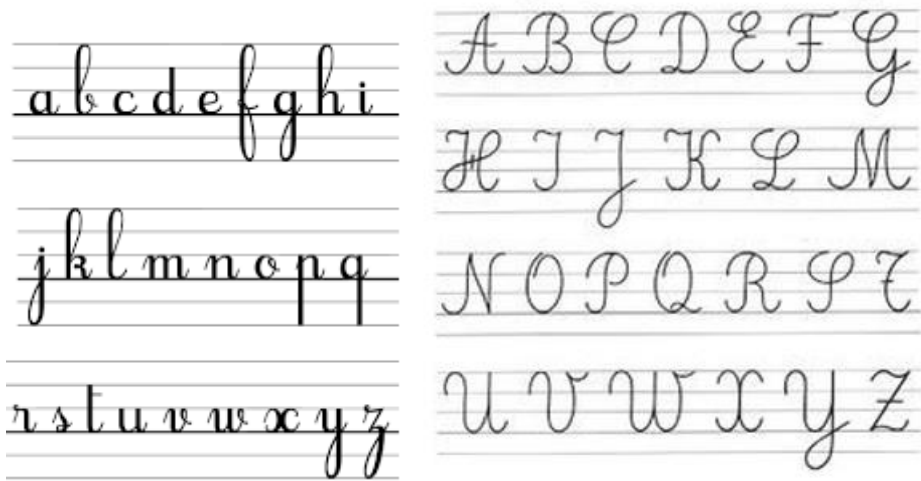 a b c d e f g h i
j k l m n o p q
r s t u v w x y z
A B C D E F G
H I J K L M
N O P Q R S T
U V W X Y Z